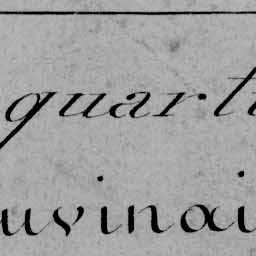 quarti
uvinai